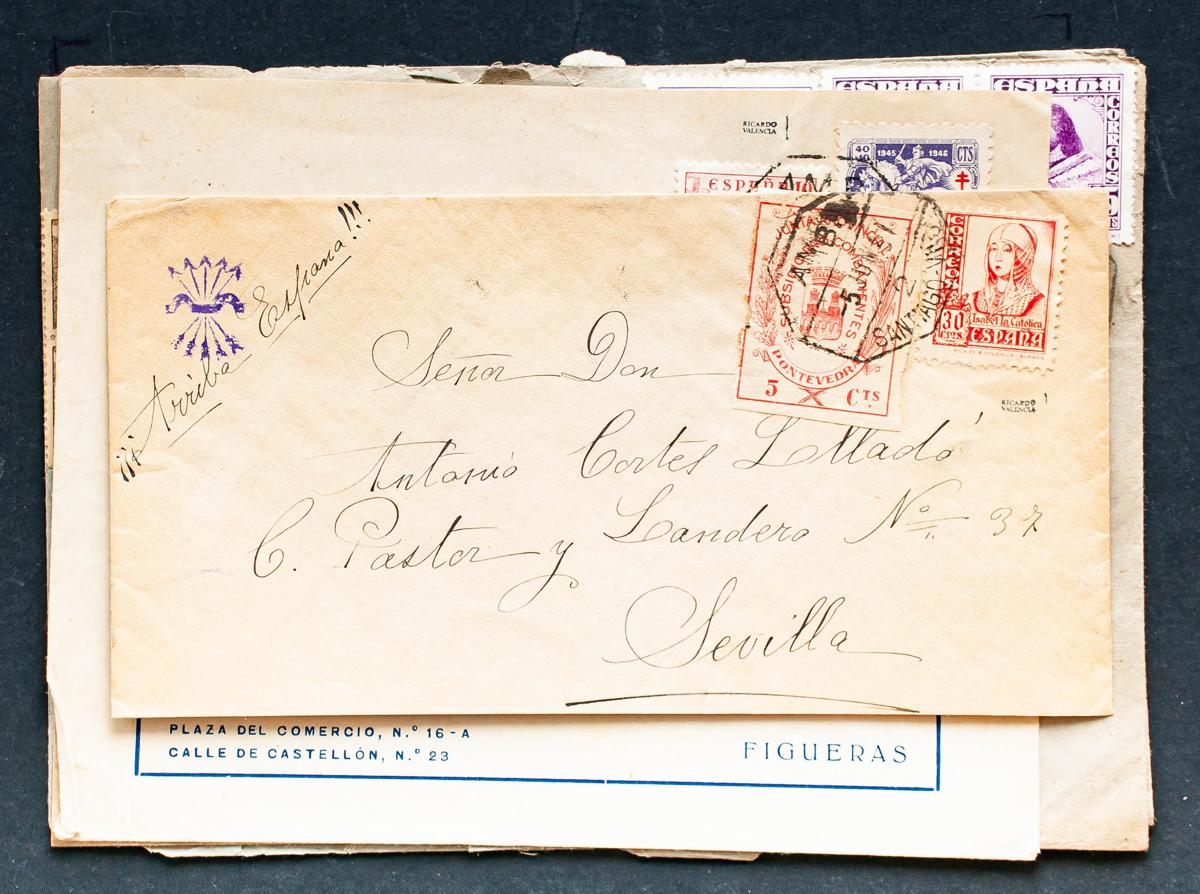 ESPAÑA
ESPAÑA
CORREOS
RICARDO
VALENCIA
40
1945
1946
CTS
ESPAÑA
¡¡¡Arriba España!!!
PONTEVEDRA
5 CTS
CORREOS
30
cts.
Isabel la Católica
ESPAÑA
RICARDO
VALENCIA
Señor Don
Antonio Cortes Lllladó
C. Pastor y Landero Nº 37
Sevilla
PLAZA DEL COMERCIO, N.º 16-A
CALLE DE CASTELLÓN, N.º 23
FIGUERAS